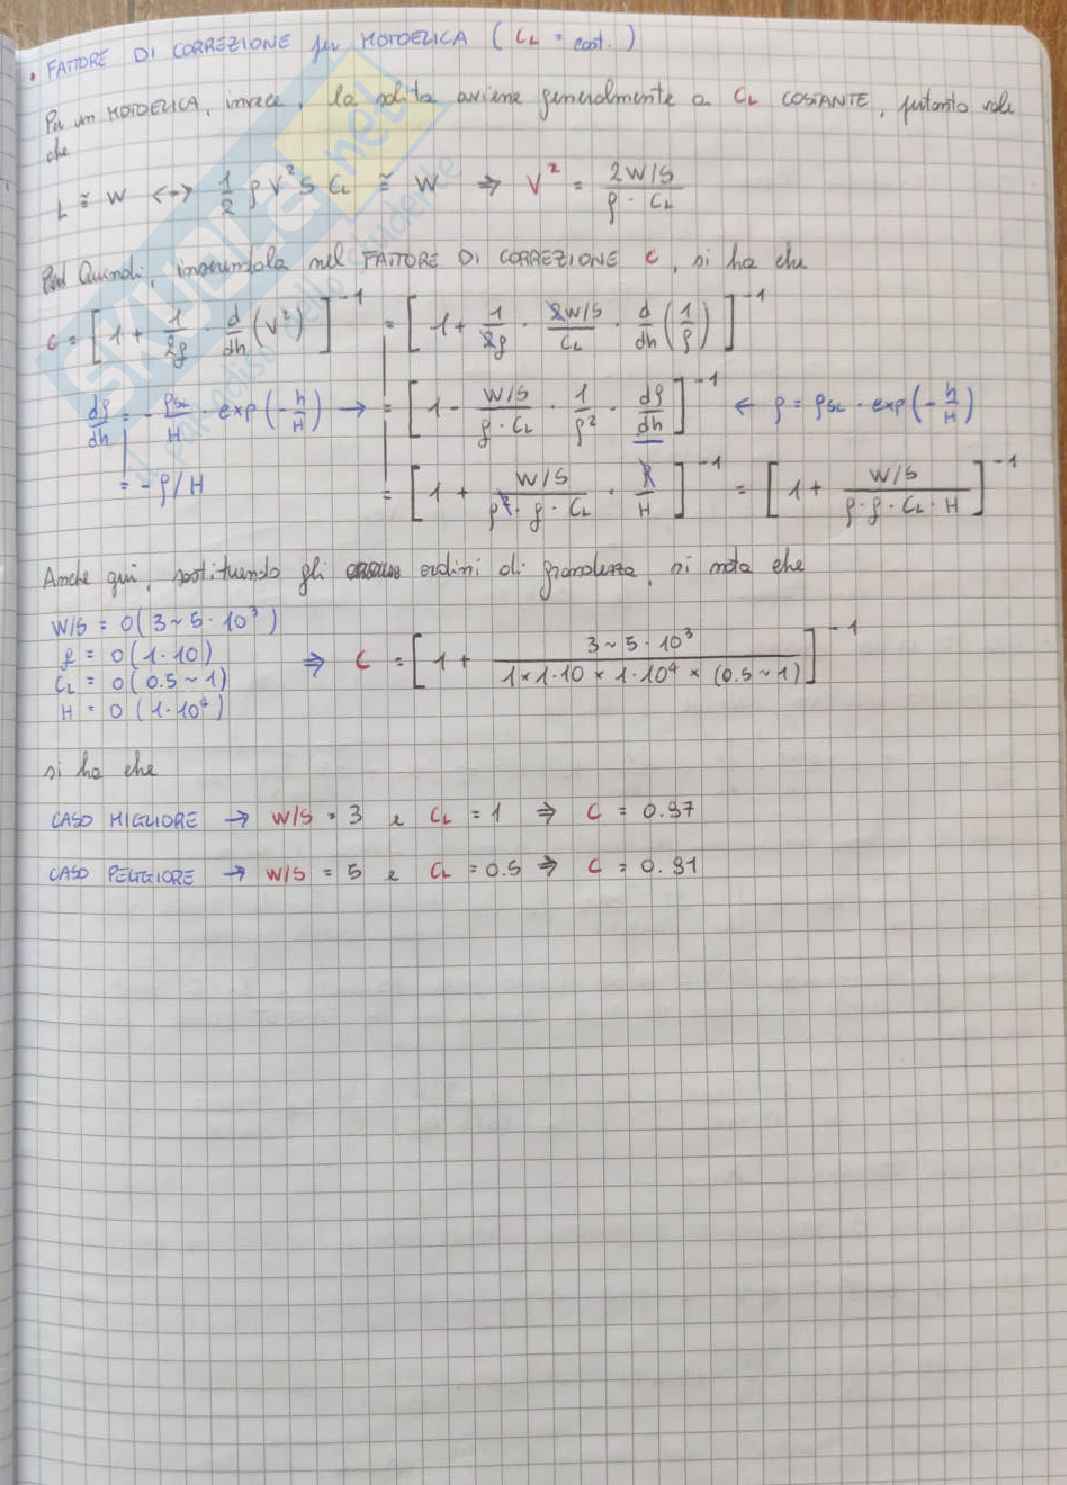 • FATTORE DI CORREZIONE per MOTOELICA ( CL = cost. )
Per un MOTOELICA, invece, la salita avviene generalmente a CL COSTANTE, pertanto vale
che
L ≅ W <-> 1/2 ρ V² S CL ≅ W ⇒ V² = 2W/S / (ρ · CL)
Quindi, inserendola nel FATTORE DI CORREZIONE C, si ha che
C = [ 1 + 1/2g · d/dh (V²) ]⁻¹ = [ 1 + 1/2g · 2W/S / CL · d/dh (1/ρ) ]⁻¹
dρ/dh = - ρSL/H · exp(-h/H) → = [ 1 - W/S / (g · CL) · 1/ρ² · dρ/dh ]⁻¹ ← ρ = ρSL · exp(-h/H)
= -ρ/H = [ 1 + W/S / (ρ² · g · CL) · ρ/H ]⁻¹ = [ 1 + W/S / (ρ · g · CL · H) ]⁻¹
Anche qui, sostituendo gli ordini di grandezza, si nota che
W/S = O( 3 ~ 5 · 10³ )
g = O( 1 · 10 )
CL = O( 0.5 ~ 1 )
H = O ( 1 · 10⁴ )
⇒ C = [ 1 + 3 ~ 5 · 10³ / (1 × 1 · 10 × 1 · 10⁴ × (0.5 ~ 1)) ]⁻¹
si ha che
CASO MIGLIORE → W/S = 3 e CL = 1 ⇒ C = 0.97
CASO PEGGIORE → W/S = 5 e CL = 0.5 ⇒ C = 0.91
SKUOLA.net